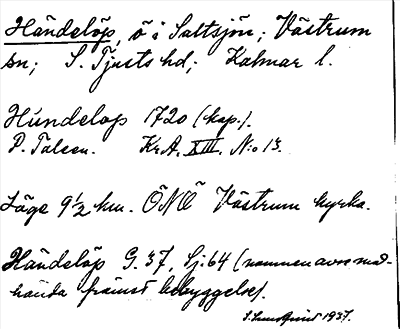 Händelöp, ö i Saltsjön; Västrum
sn; S. Tjusts hd; Kalmar l.
Hündelop 1720 (kop.).
P. Tolsen. KrA. XIII. N:o 13.
Läge 9½ km. ÖNÖ Västrum kyrka.
Händelöp G. 37, Sj: 64 (namnen avse med-
hända främst bebyggelse).
1937.